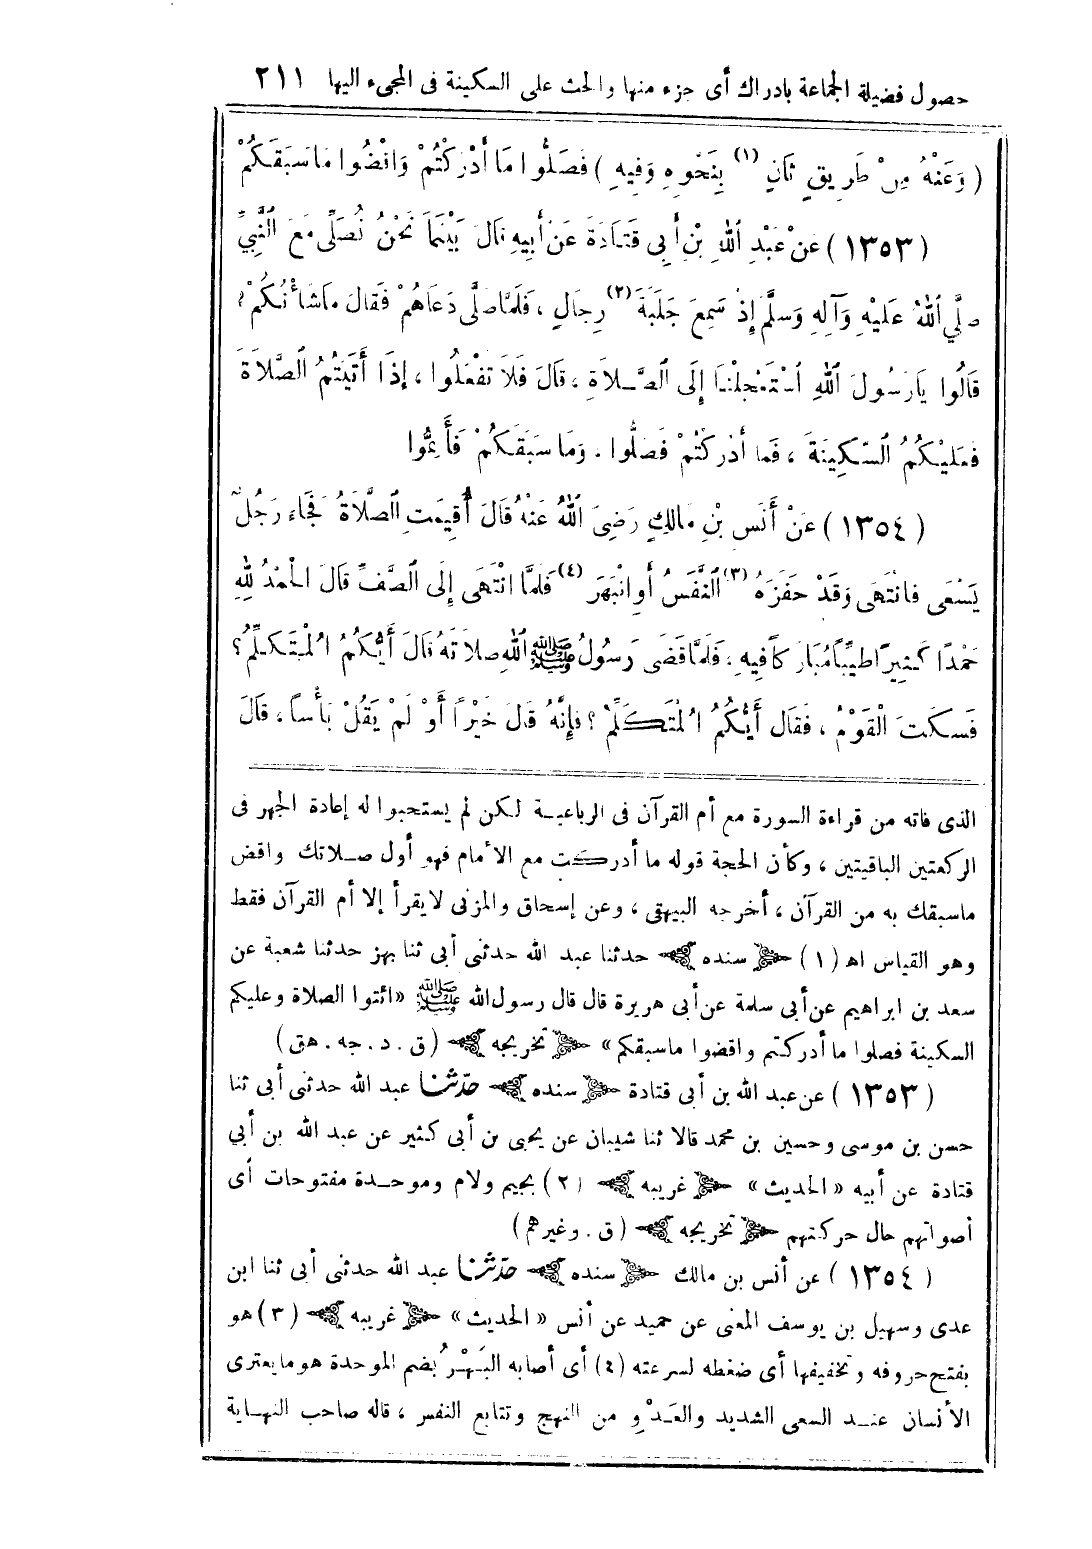 حصول فضيلة الجماعة بادراك أى جزء منها والحث على السكينة فى المجىء اليها ٢١١
( وَعَنْهُ مِنْ طَرِيقٍ ثَانٍ (١) بِنَحْوِهِ وَفِيهِ ) فَصَلُّوا مَا أَدْرَكْتُمْ وَاقْضُوا مَا سَبَقَكُمْ
( ١٣٥٣ ) عَنْ عَبْدِ اللهِ بْنِ أَبِى قَتَادَةَ عَنْ أَبِيهِ قَالَ بَيْنَمَا نَحْنُ نُصَلِّى مَعَ النَّبِيِّ
صَلَّي اللهُ عَلَيْهِ وَآلِهِ وَسَلَّمَ إِذْ سَمِعَ جَلَبَةَ (٢) رِجَالٍ ، فَلَمَّا صَلَّى دَعَاهُمْ فَقَالَ مَا شَأْنُكُمْ ؟
قَالُوا يَا رَسُولَ اللهِ اسْتَعْجَلْنَا إِلَى الصَّلَاةِ ، قَالَ فَلَا تَفْعَلُوا ، إِذَا أَتَيْتُمُ الصَّلَاةَ
فَعَلَيْكُمُ السَّكِينَةَ ، فَمَا أَدْرَكْتُمْ فَصَلُّوا . وَمَا سَبَقَكُمْ فَأَتِمُّوا
( ١٣٥٤ ) عَنْ أَنَسِ بْنِ مَالِكٍ رَضِىَ اللهُ عَنْهُ قَالَ أُقِيمَتِ الصَّلَاةُ فَجَاءَ رَجُلٌ
يَسْعَى فَانْتَهَى وَقَدْ حَفَزَهُ (٣) النَّفَسُ أَوِ انْبَهَرَ (٤) فَلَمَّا انْتَهَى إِلَى الصَّفِّ قَالَ الْحَمْدُ لِلهِ
حَمْدًا كَثِيرًا طَيِّبًا مُبَارَكًا فِيهِ ، فَلَمَّا قَضَى رَسُولُ اللهِ ﷺ صَلَاتَهُ قَالَ أَيُّكُمُ الْمُتَكَلِّمُ ؟
فَسَكَتَ الْقَوْمُ ، فَقَالَ أَيُّكُمُ الْمُتَكَلِّمُ ؟ فَإِنَّهُ قَالَ خَيْرًا أَوْ لَمْ يَقُلْ بَأْسًا ، قَالَ
الذى فاته من قراءة السورة مع أم القرآن فى الرباعيـة لكن لم يستحبوا له إعادة الجهر فى
الركعتين الباقيتين ، وكأن الحجة قوله ما أدركت مع الأمام فهو أول صـلاتك واقض
ماسبقك به من القرآن ، أخرجه البيهقى ، وعن إسحاق والمزنى لايقرأ إلا أم القرآن فقط
وهو القياس اهـ (١) ﴿ سنده ﴾ حدثنا عبد الله حدثنى أبى ثنا بهز حدثنا شعبة عن
سعد بن ابراهيم عن أبى سلمة عن أبى هريرة قال قال رسول الله ﷺ «ائتوا الصلاة وعليكم
السكينة فصلوا ما أدركتم واقضوا ماسبقكم» ﴿ تخريجه ﴾ (ق . د . جه . هق)
( ١٣٥٣ ) عن عبد الله بن أبى قتادة ﴿ سنده ﴾ حدّثنا عبد الله حدثنى أبى ثنا
حسن بن موسى وحسين بن محمد قالا ثنا شيبان عن يحيى بن أبى كثير عن عبد الله بن أبي
قتادة عن أبيه «الحديث» ﴿ غريبه ﴾ (٢) بجيم ولام وموحـدة مفتوحات أى
أصواتهم حال حركتهم ﴿ تخريجه ﴾ (ق . وغيرهم)
( ١٣٥٤ ) عن أنس بن مالك ﴿ سنده ﴾ حدّثنا عبد الله حدثنى أبى ثنا ابن
عدى وسهيل بن يوسف المعنى عن حميد عن أنس «الحديث» ﴿ غريبه ﴾ (٣) هو
بفتح حروفه وتخفيفها أى ضغطه لسرعته (٤) أى أصابه البَهْرُ بضم الموحدة هو ما يعترى
الأنسان عنـد السعى الشديد والعَدْوِ من النهج وتتابع النفس ، قاله صاحب النهـاية